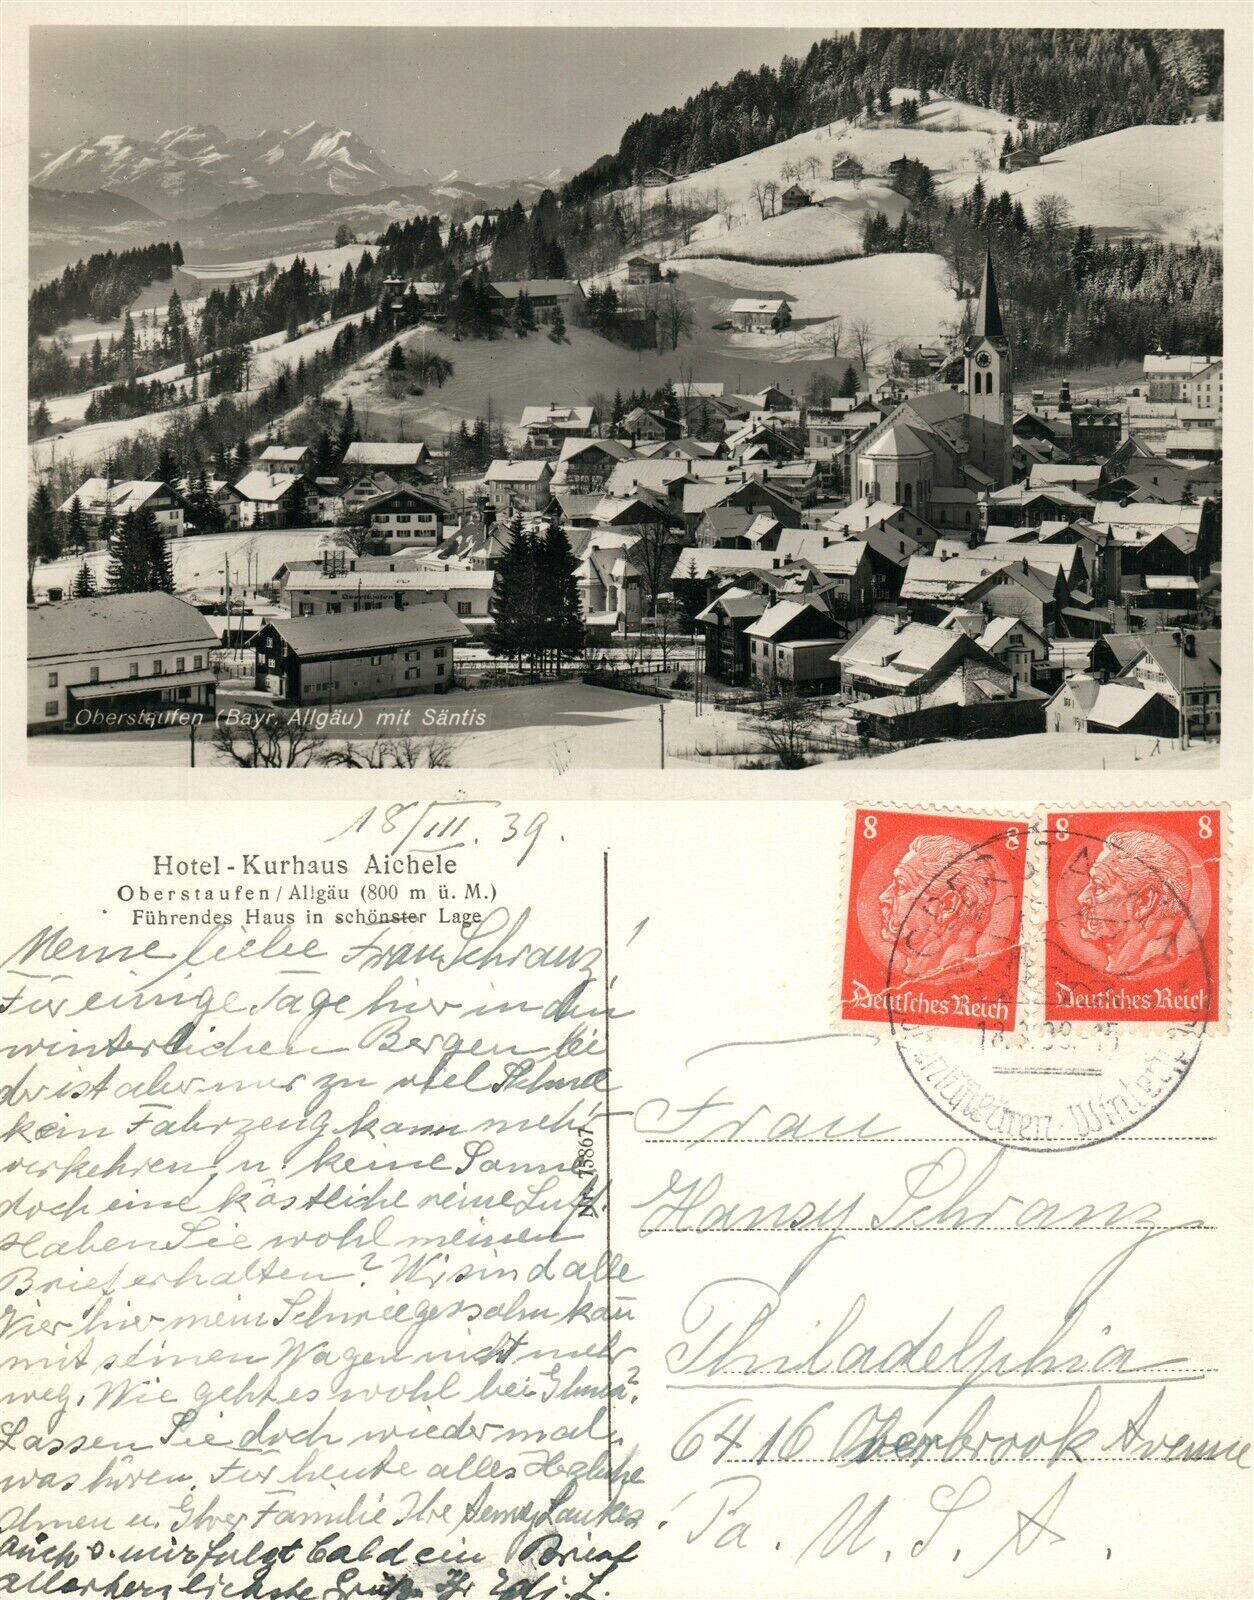 Oberstaufen
Oberstaufen (Bayr. Allgäu) mit Säntis
18/III. 39.
Hotel-Kurhaus Aichele
Oberstaufen/Allgäu (800 m ü. M.)
Führendes Haus in schönster Lage
Meine liebe Frau Schranz!
Für einige Tage hier in den
winterlichen Bergen bei
der ist aber nur zu viel Schnee
kein Fahrzeug kann mehr
verkehren, u. keine Sonne
doch eine köstliche reine Luft.
Haben Sie wohl meinen
Brief erhalten? Wir sind alle
Vier hier mein Schwiegersohn kan
mit seinen Wagen nicht mehr
weg. Wie geht es wohl bei Ihnen?
Lassen Sie doch wieder mal
was hören. Für heute alles Herzliche
Ihnen u. Ihrer Familie Ihre
Auch v. mir folgt bald ein Brief
allerherzlichste Grüße Ihr
Nr. 15867
8 8
Deutsches Reich
8 8
Deutsches Reich
OBERSTAUFEN
18.3.39.-15
Frau
Hansy Schranz
Philadelphia
6416 Overbrook Avenue
Pa. U. S. A.